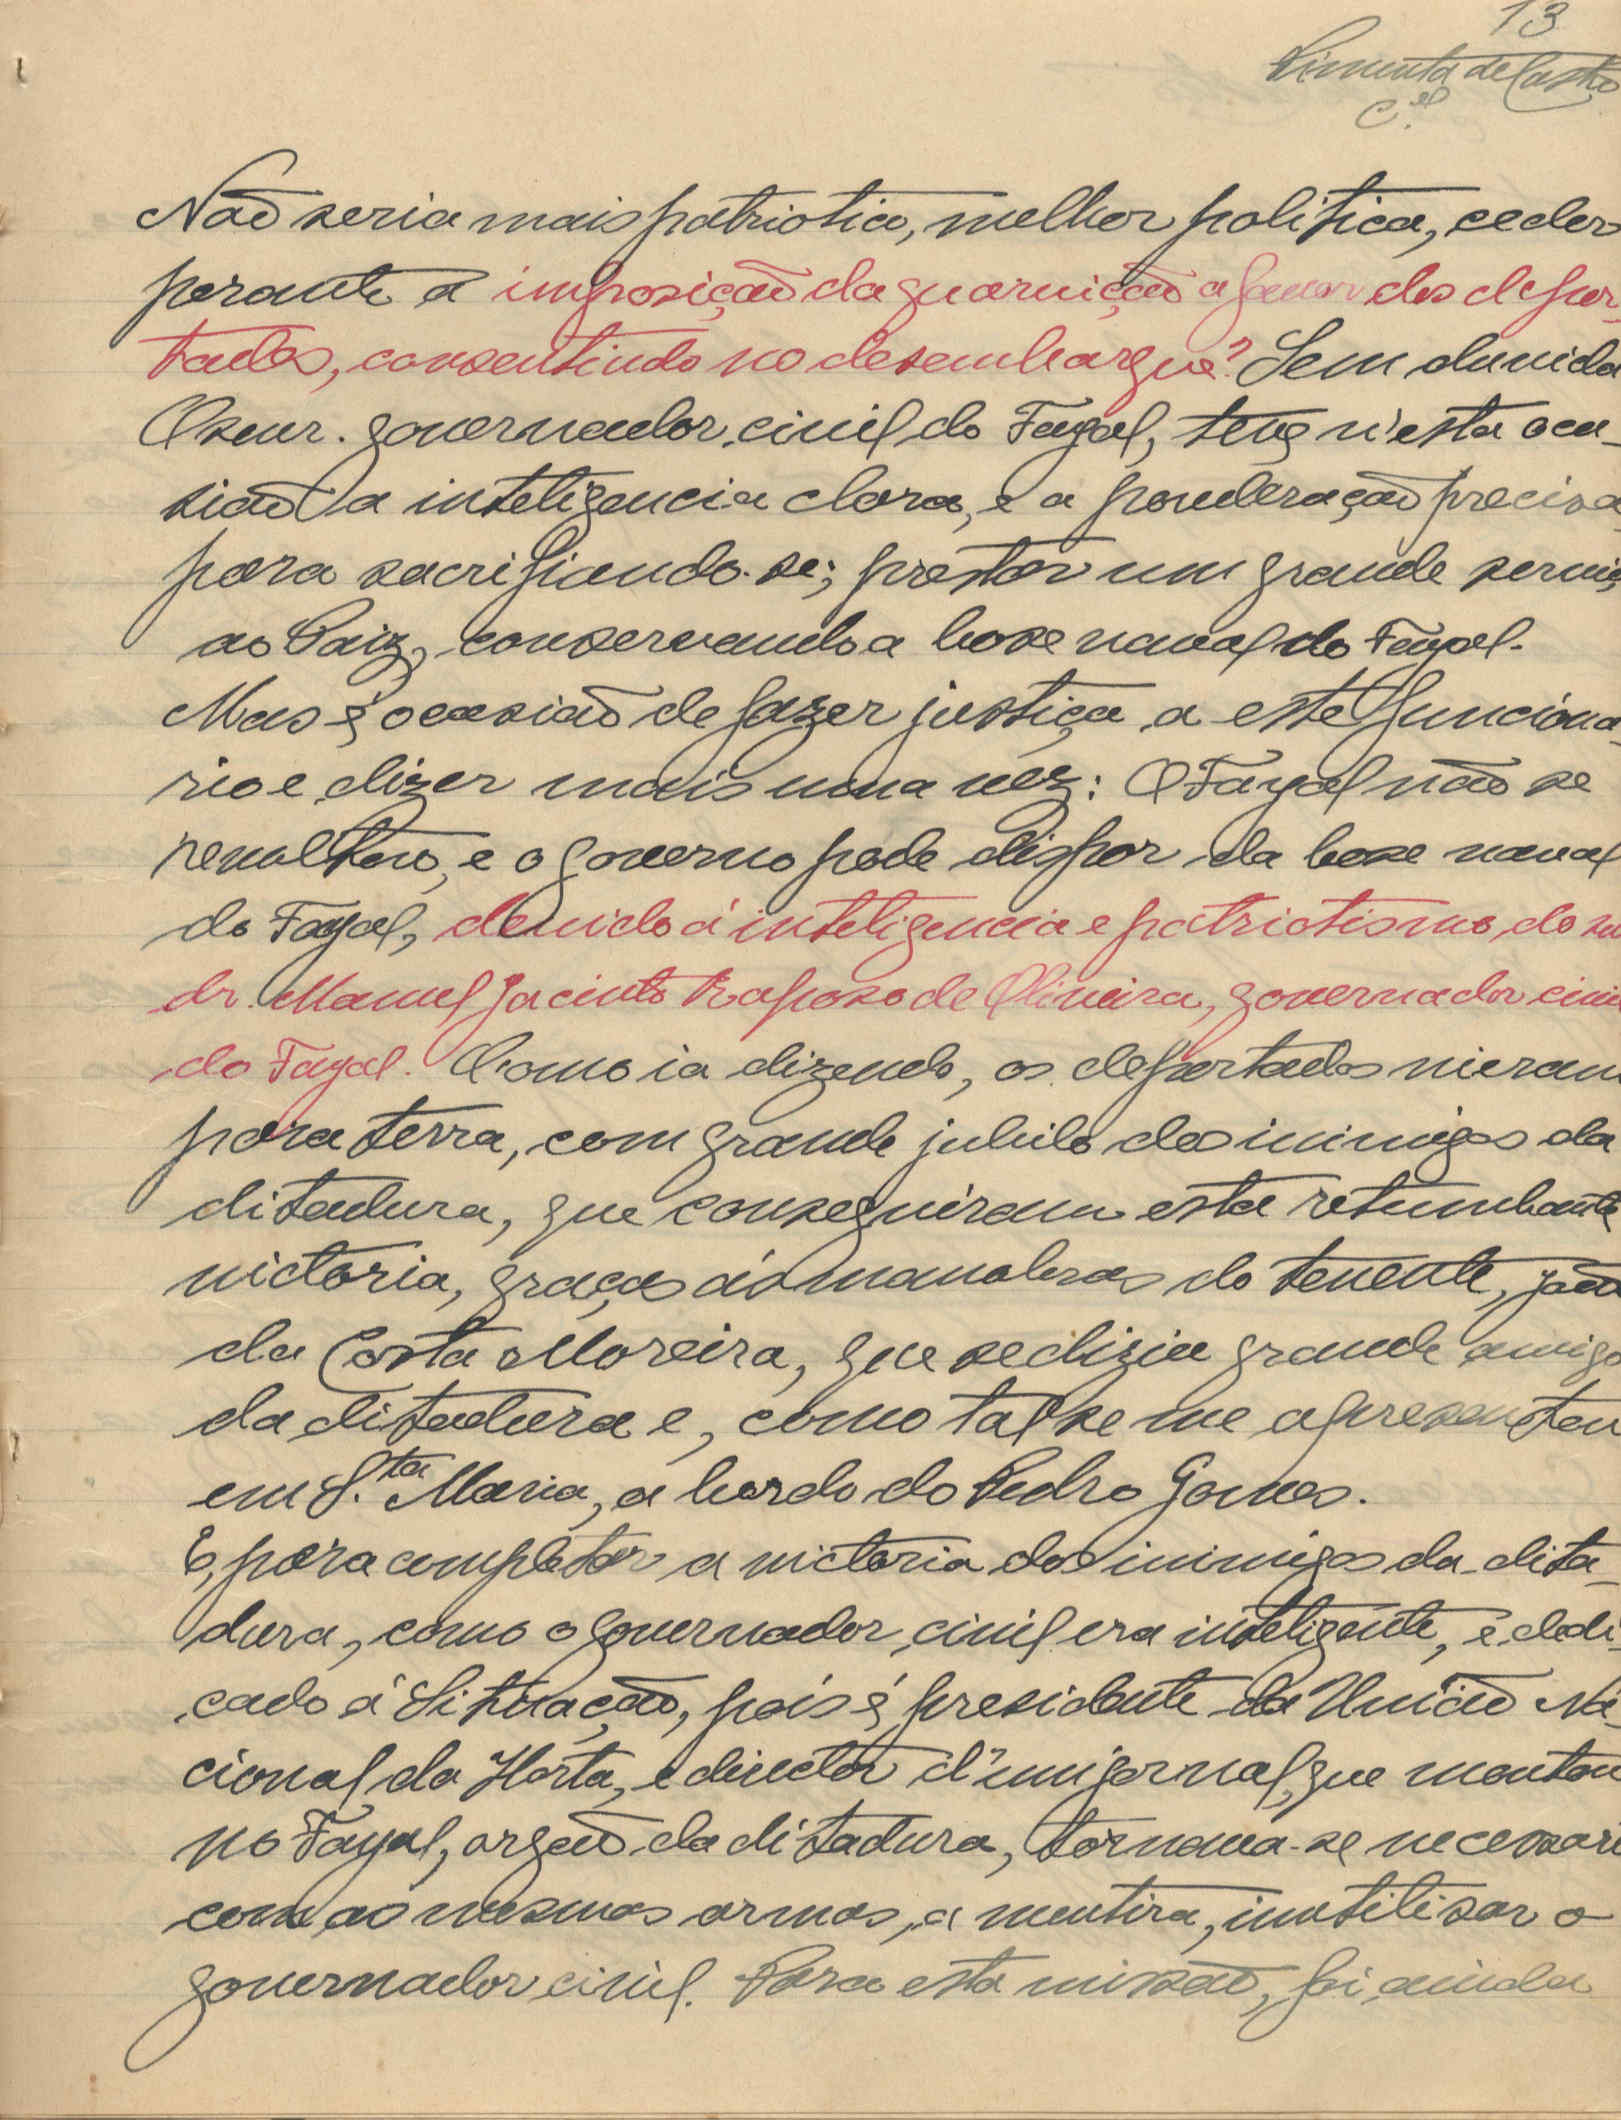 13
Pimenta de Castro
C.el
Não seria mais patriotico, melhor politica, ceder
perante a imposição da guarnição a favor dos depor-
tados, consentindo no desembarque? Sem duvida
O snr. governador civil do Fayal, teve n'esta oca-
sião a inteligencia clara, e a ponderação precisa
para sacrifiando-se; prestar um grande serviç
ao Paiz, conservando a base naval do Fayal.
Mas é ocasião de fazer justiça a este funciona-
rio e dizer mais uma vez: O Fayal não se
revoltou, e o governo pode dispor da base naval
do Fayal, devido á inteligencia e patriotismo do sn
dr. Manuel Jacinto Raposo de Oliveira, governador civi
do Fayal. Como ia dizendo, os deportados vieram
para terra, com grande jubilo dos inimigos da
ditadura, que conseguiram esta retumbante
victoria, graças ás manobras do tenente, João
da Costa Moreira, que se dizia grande amigo
da ditadura e, como tal se me apresentou
em S.ta Maria, a bordo do Pedro Gomes.
E, para completar a victoria dos inimigos da dita-
dura, como o governador civil era inteligente, e dedi-
cado á Situação, pois é presidente da União Na-
cional da Horta, e director d'um jornal, que montou
no Fayal, orgão da ditadura, tornava-se necessari
com as mesmas armas, a mentira, inutilisar o
governador civil. Para esta missão, foi ainda